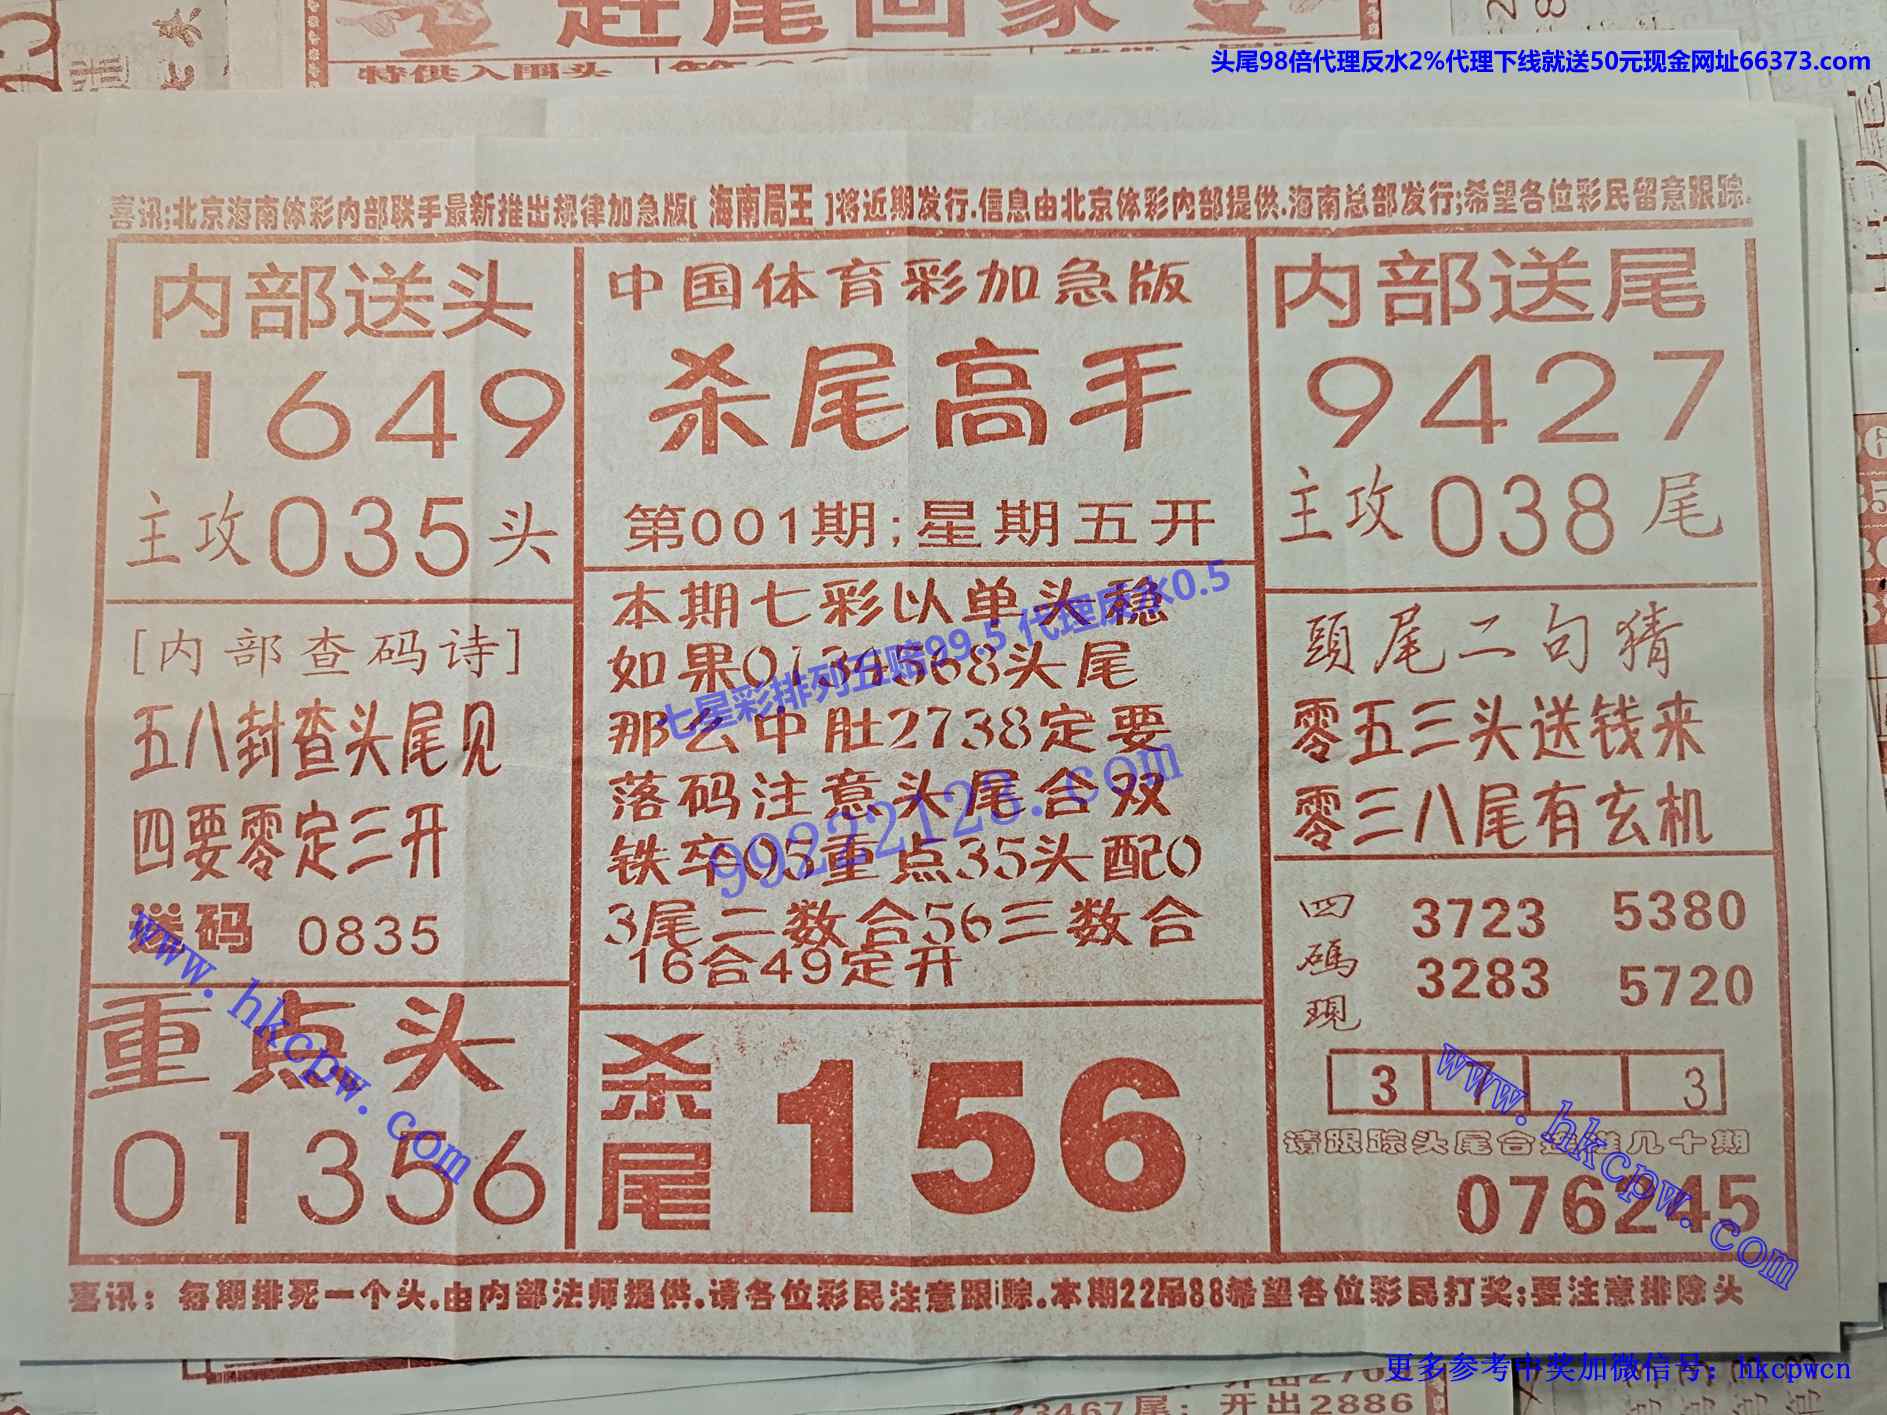 赶尾回家
特供入围头
头尾98倍代理反水2%代理下线就送50元现金网址66373.com
喜讯;北京海南体彩内部联手最新推出规律加急版[ 海南局王 ]将近期发行.信息由北京体彩内部提供.海南总部发行;希望各位彩民留意跟踪.
内部送头
1649
主攻035头
[内部查码诗]
五八封查头尾见
四要零定三开
送码 0835
重点头
01356
中国体育彩加急版
杀尾高手
第001期;星期五开
本期七彩以单头稳
如果0134568头尾
那么中肚2738定要
落码注意头尾合双
铁卒05重点35头配0
3尾二数合56三数合
16合49定开
杀尾 156
内部送尾
9427
主攻038尾
頭尾二句猜
零五三头送钱来
零三八尾有玄机
四碼現
3723 5380
3283 5720
3 7 3
请跟踪头尾合连进几十期
076245
喜讯：每期排死一个头.由内部法师提供.请各位彩民注意跟踪.本期22吊88希望各位彩民打奖;要注意排除头
七星彩排列五赔99.5 代理反水0.5
99222123.com
www.hkcpw.com
www.hkcpw.com
更多参考中奖加微信号：hkcpwcn
123467尾；开出2886